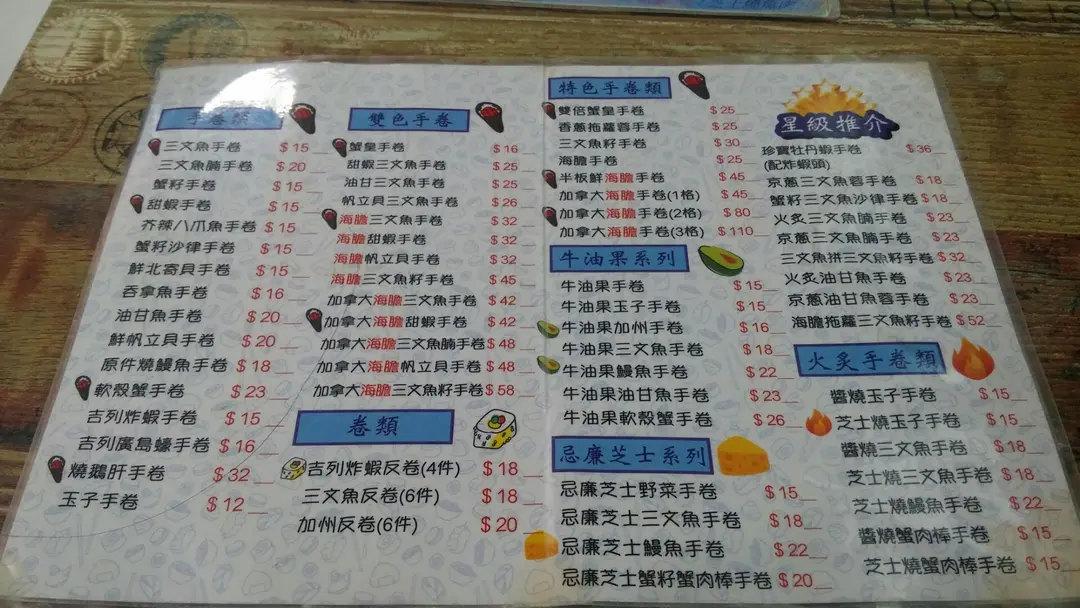 手卷類
三文魚手卷 $15
三文魚腩手卷 $20
蟹籽手卷 $15
甜蝦手卷 $15
芥辣八爪魚手卷 $15
蟹籽沙律手卷 $15
鮮北寄貝手卷 $15
吞拿魚手卷 $16
油甘魚手卷 $20
鮮帆立貝手卷 $20
原件燒鰻魚手卷 $18
軟殼蟹手卷 $23
吉列炸蝦手卷 $15
吉列廣島蠔手卷 $16
燒鵝肝手卷 $32
玉子手卷 $12
雙色手卷
蟹皇手卷 $16
甜蝦三文魚手卷 $25
油甘三文魚手卷 $25
帆立貝三文魚手卷 $26
海膽三文魚手卷 $32
海膽甜蝦手卷 $32
海膽帆立貝手卷 $32
海膽三文魚籽手卷 $45
加拿大海膽三文魚手卷 $42
加拿大海膽甜蝦手卷 $42
加拿大海膽三文魚腩手卷 $48
加拿大海膽帆立貝手卷 $48
加拿大海膽三文魚籽手卷 $58
卷類
吉列炸蝦反卷(4件) $18
三文魚反卷(6件) $18
加州反卷(6件) $20
特色手卷類
雙倍蟹皇手卷 $25
香蔥拖蘿蓉手卷 $25
三文魚籽手卷 $30
海膽手卷 $25
半板鮮海膽手卷 $45
加拿大海膽手卷(1格) $45
加拿大海膽手卷(2格) $80
加拿大海膽手卷(3格) $110
牛油果系列
牛油果手卷 $15
牛油果玉子手卷 $15
牛油果加州手卷 $16
牛油果三文魚手卷 $18
牛油果鰻魚手卷 $22
牛油果油甘魚手卷 $23
牛油果軟殼蟹手卷 $26
忌廉芝士系列
忌廉芝士野菜手卷 $15
忌廉芝士三文魚手卷 $18
忌廉芝士鰻魚手卷 $22
忌廉芝士蟹籽蟹肉棒手卷 $20
星級推介
珍寶牡丹蝦手卷 $36
(配炸蝦頭)
京蔥三文魚蓉手卷 $18
蟹籽三文魚沙律手卷 $18
火炙三文魚腩手卷 $23
京蔥三文魚腩手卷 $23
三文魚拼三文魚籽手卷 $32
火炙油甘魚手卷 $23
京蔥油甘魚蓉手卷 $23
海膽拖蘿三文魚籽手卷 $52
火炙手卷類
醬燒玉子手卷 $15
芝士燒玉子手卷 $15
醬燒三文魚手卷 $18
芝士燒三文魚手卷 $18
芝士燒鰻魚手卷 $22
醬燒蟹肉棒手卷 $15
芝士燒蟹肉棒手卷 $15